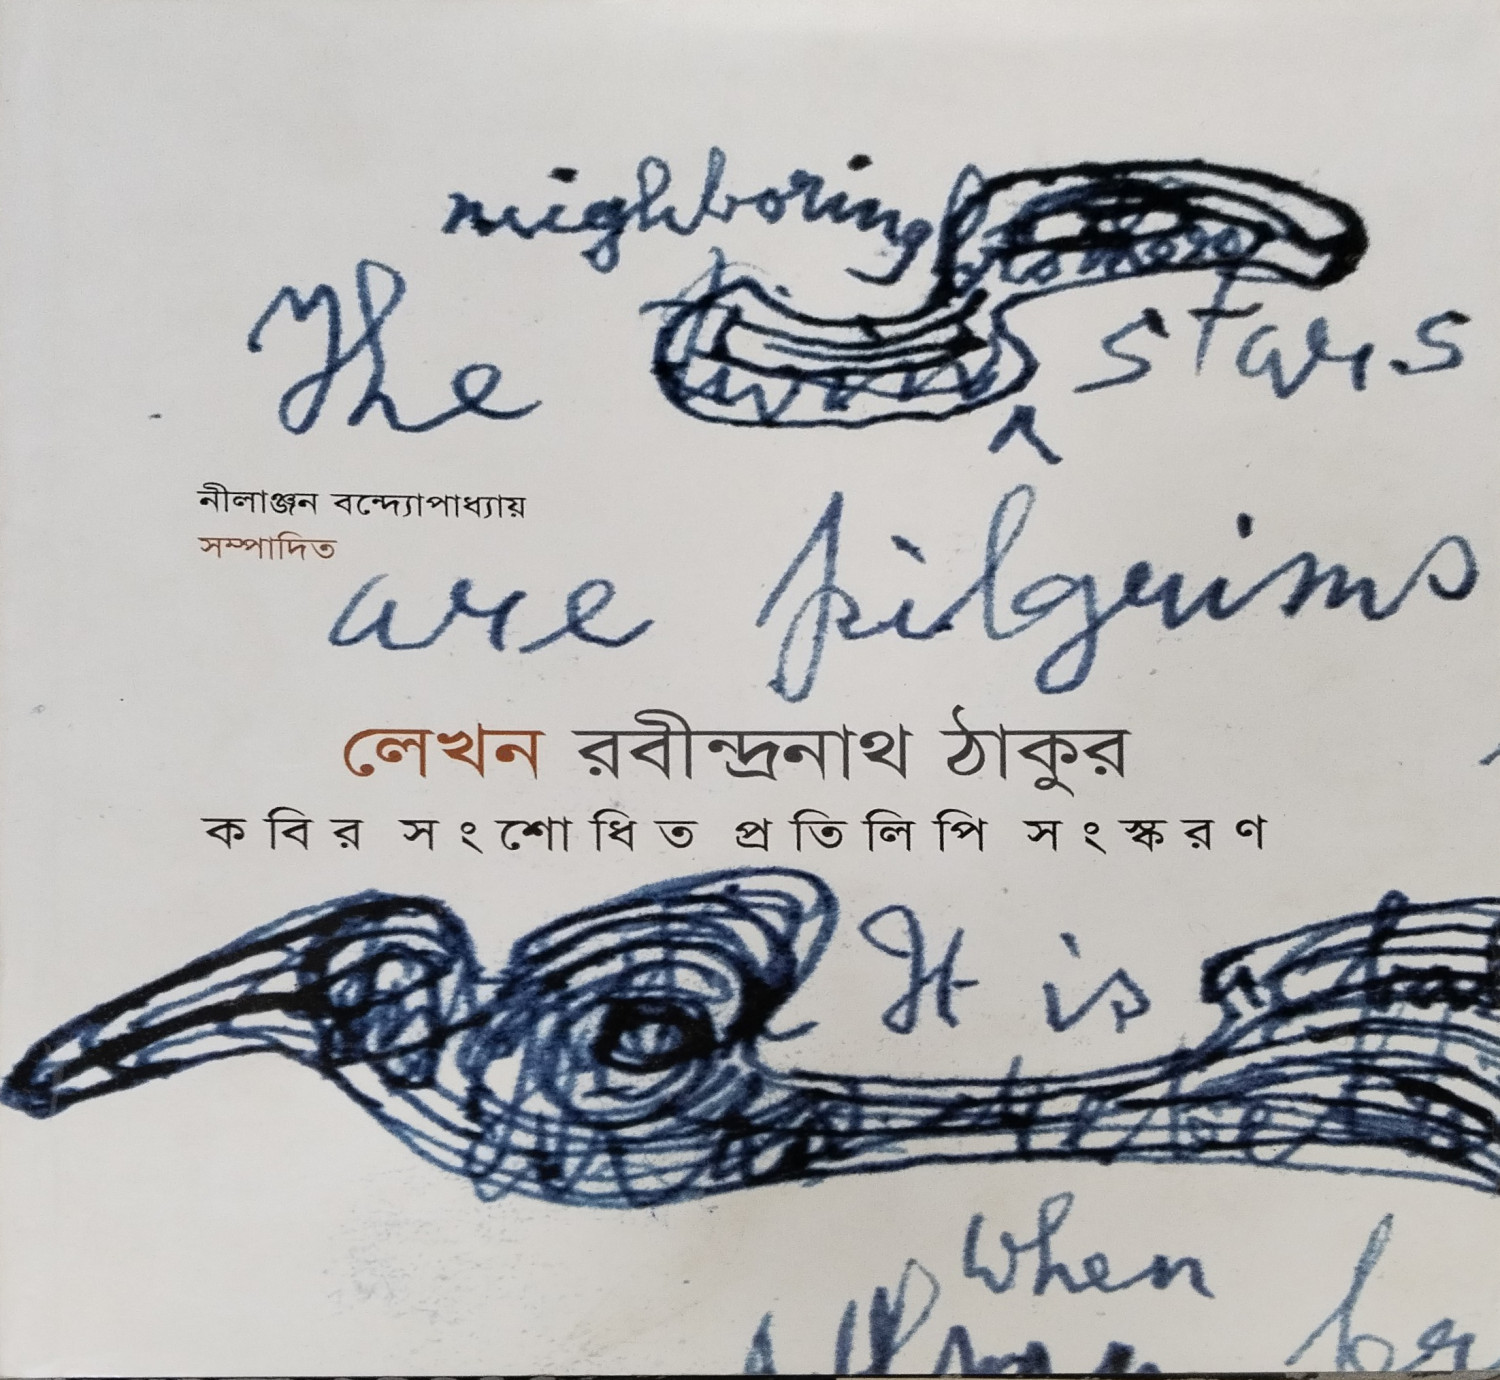 neighboring
The stars
নীলাঞ্জন বন্দ্যোপাধ্যায়
সম্পাদিত
are pilgrims
লেখন রবীন্দ্রনাথ ঠাকুর
কবির সংশোধিত প্রতিলিপি সংস্করণ
It is
when